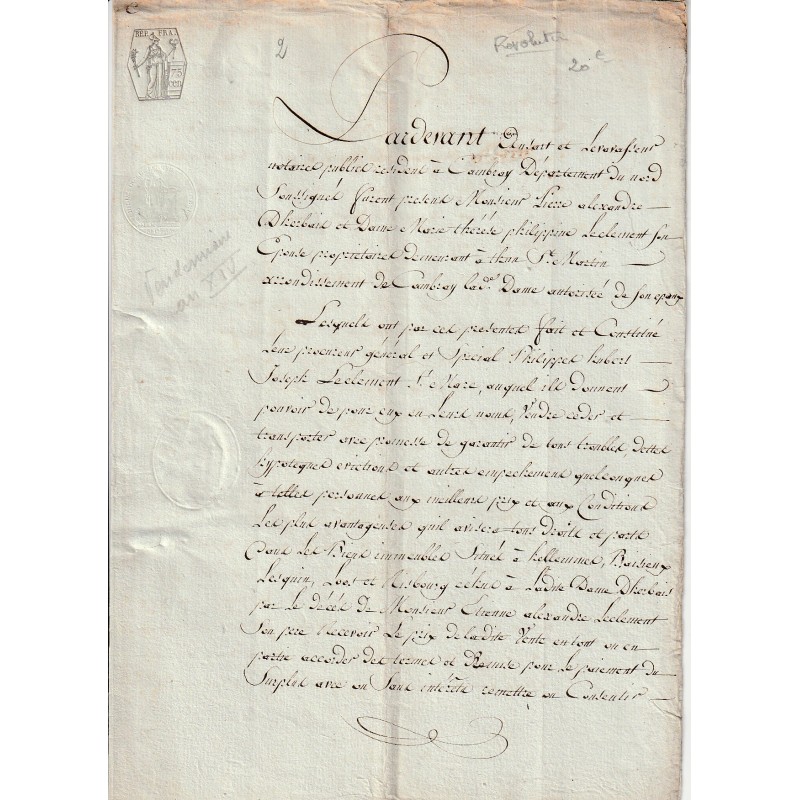 REP. FRA.
75
cen
2
Revolution
20 €
Pardevant Ansart et Levavasseur
notaires publics resident à Cambray Département du nord
Soussignés furent present Monsieur Pierre alexandre
Dherbais et Dame Marie thérèse philippine Leclement Son
Epouse propriétaires demeurant à thun St. Martin
arrondissement de Cambray lade. Dame autorisée de Son epoux
Vendemiaire
an XIV
Lesquels ont par ces presentes fait et Constitué
leur procureur général et Spécial Philippes hubert
Joseph Leclement St. Mare, auquel ils donnent
pouvoir de pour eux en Leurs noms, Vendre ceder et
transporter avec promesse de garantir de tous troubles, dettes
hypoteques evictions et autres empechements quelconques
à telles personnes aux meilleurs prix et aux Conditions
Les plus avantageuses quil avisera tous droits et parts
dans Les Biens immeubles Situés à hellemmes, Baisieux
Lesquin, Loos et échus à Ladite Dame Dherbais
par Le décès de Monsieur Etienne alexandre Leclement
Son pere Recevoir Le prix de ladite Vente en tout ou en
partie accorder des termes et Remise pour Le paiement du
Surplus avec ou Sans intérêts remettre ou Consentir